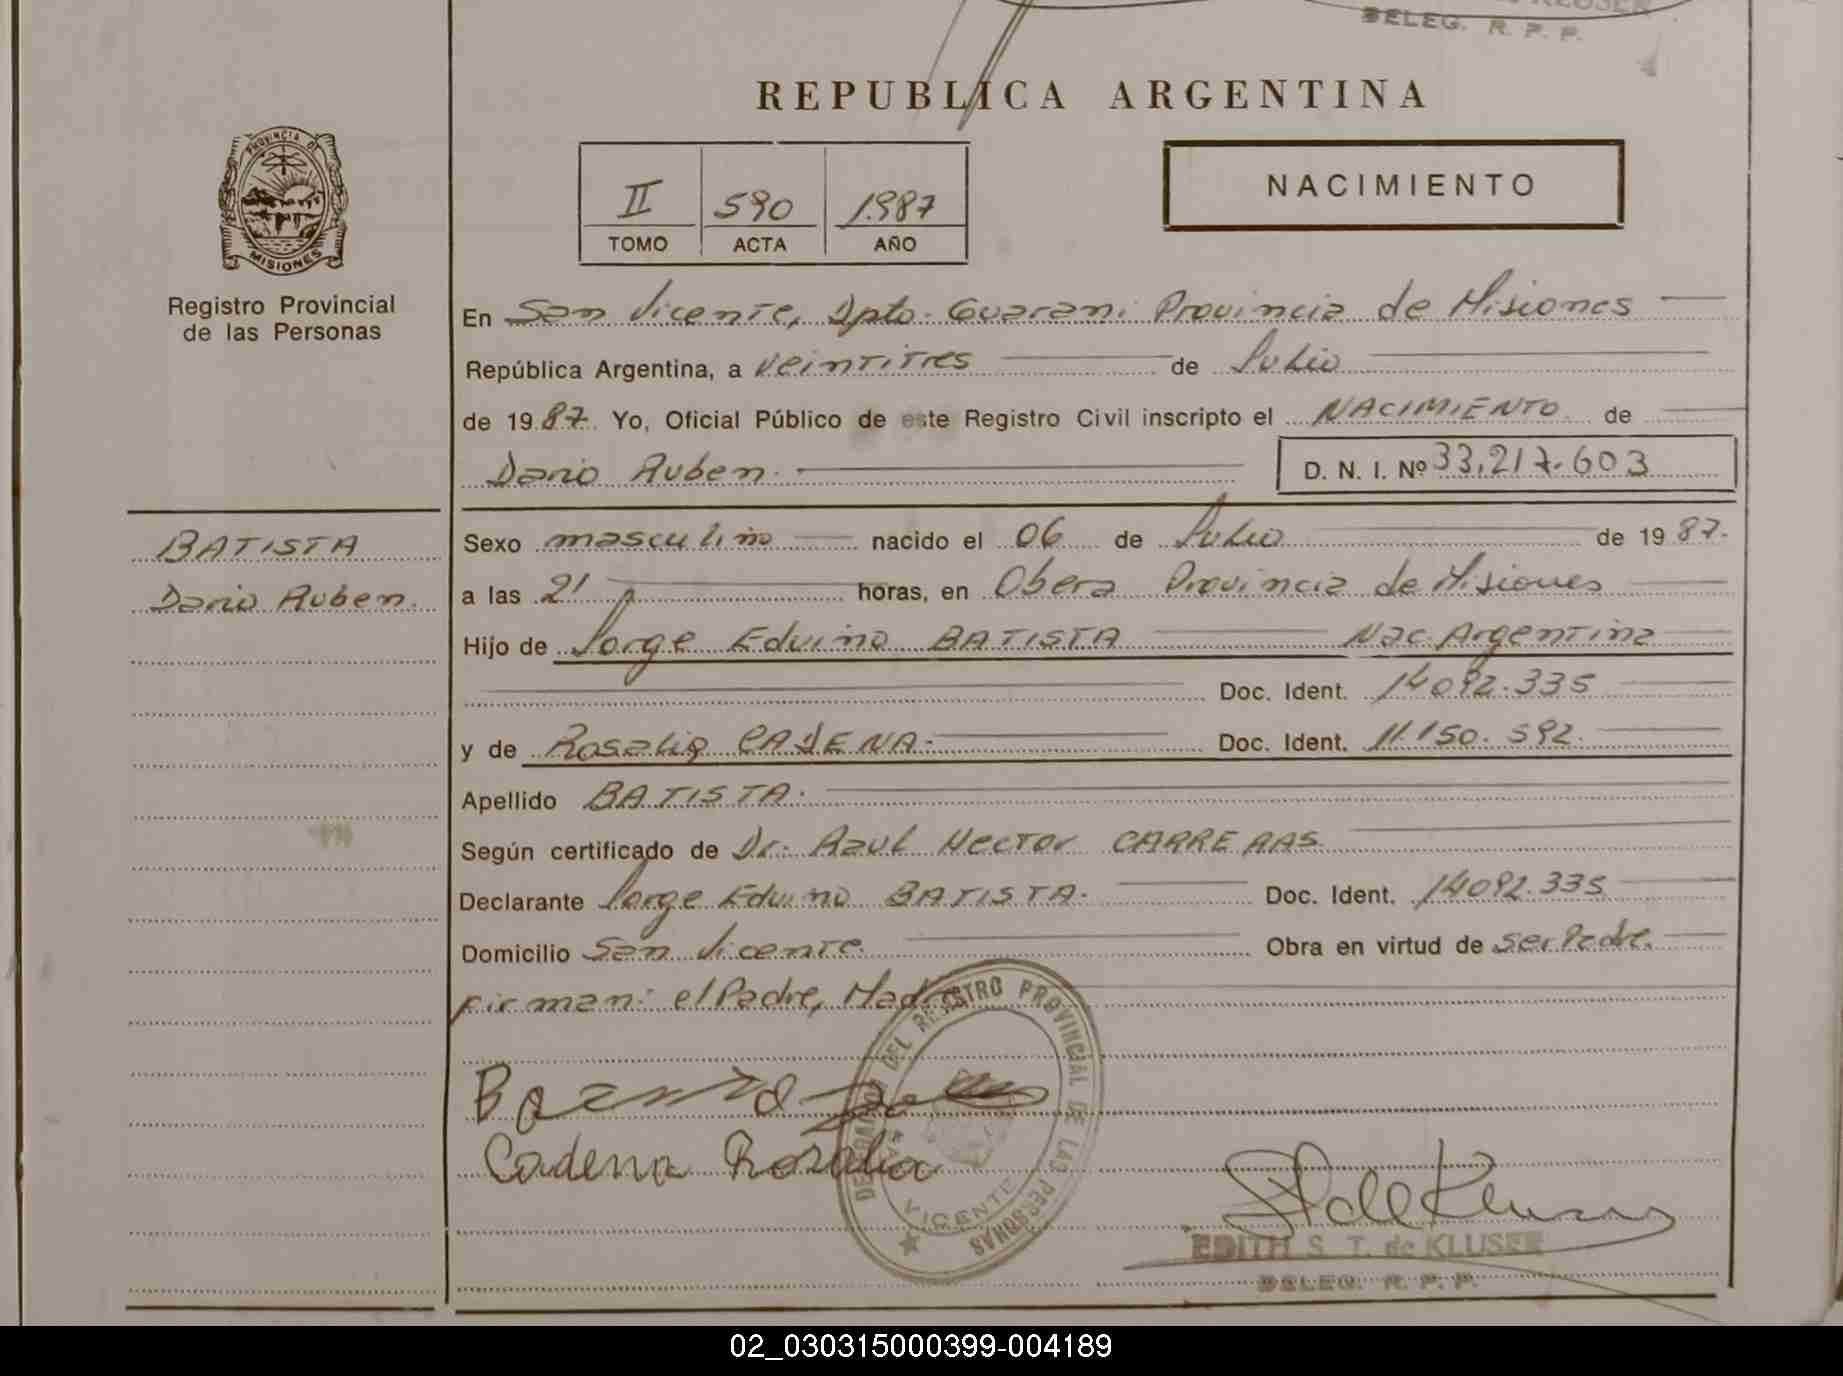 DELEG. R. P. P.
REPUBLICA ARGENTINA
PROVINCIA DE
MISIONES
Registro Provincial
de las Personas
II 590 1987
TOMO ACTA AÑO
NACIMIENTO
En San Vicente, Dpto. Guarani Provincia de Misiones
República Argentina, a veintitres de Julio
de 1987. Yo, Oficial Público de este Registro Civil inscripto el NACIMIENTO de
Dario Ruben. D. N. I. Nº 33.217.603
BATISTA
Dario Ruben.
Sexo masculino nacido el 06 de Julio de 1987.
a las 21 horas, en Obera Provincia de Misiones
Hijo de Jorge Eduino BATISTA Nac. Argentina
Doc. Ident. 14092.335
y de Rosalia CADENA. Doc. Ident. 11.150.592.
Apellido BATISTA.
Según certificado de Dr. Azul Hector CARRERAS.
Declarante Jorge Eduino BATISTA. Doc. Ident. 14092.335
Domicilio San Vicente. Obra en virtud de ser Padre.
Firman: el Padre, Madre
DEL REGISTRO PROVINCIAL DE LAS PERSONAS
VICENTE
Cadena Rosalia
EDITH S. T. de KLUSER
DELEG. R. P. P.
02_030315000399-004189